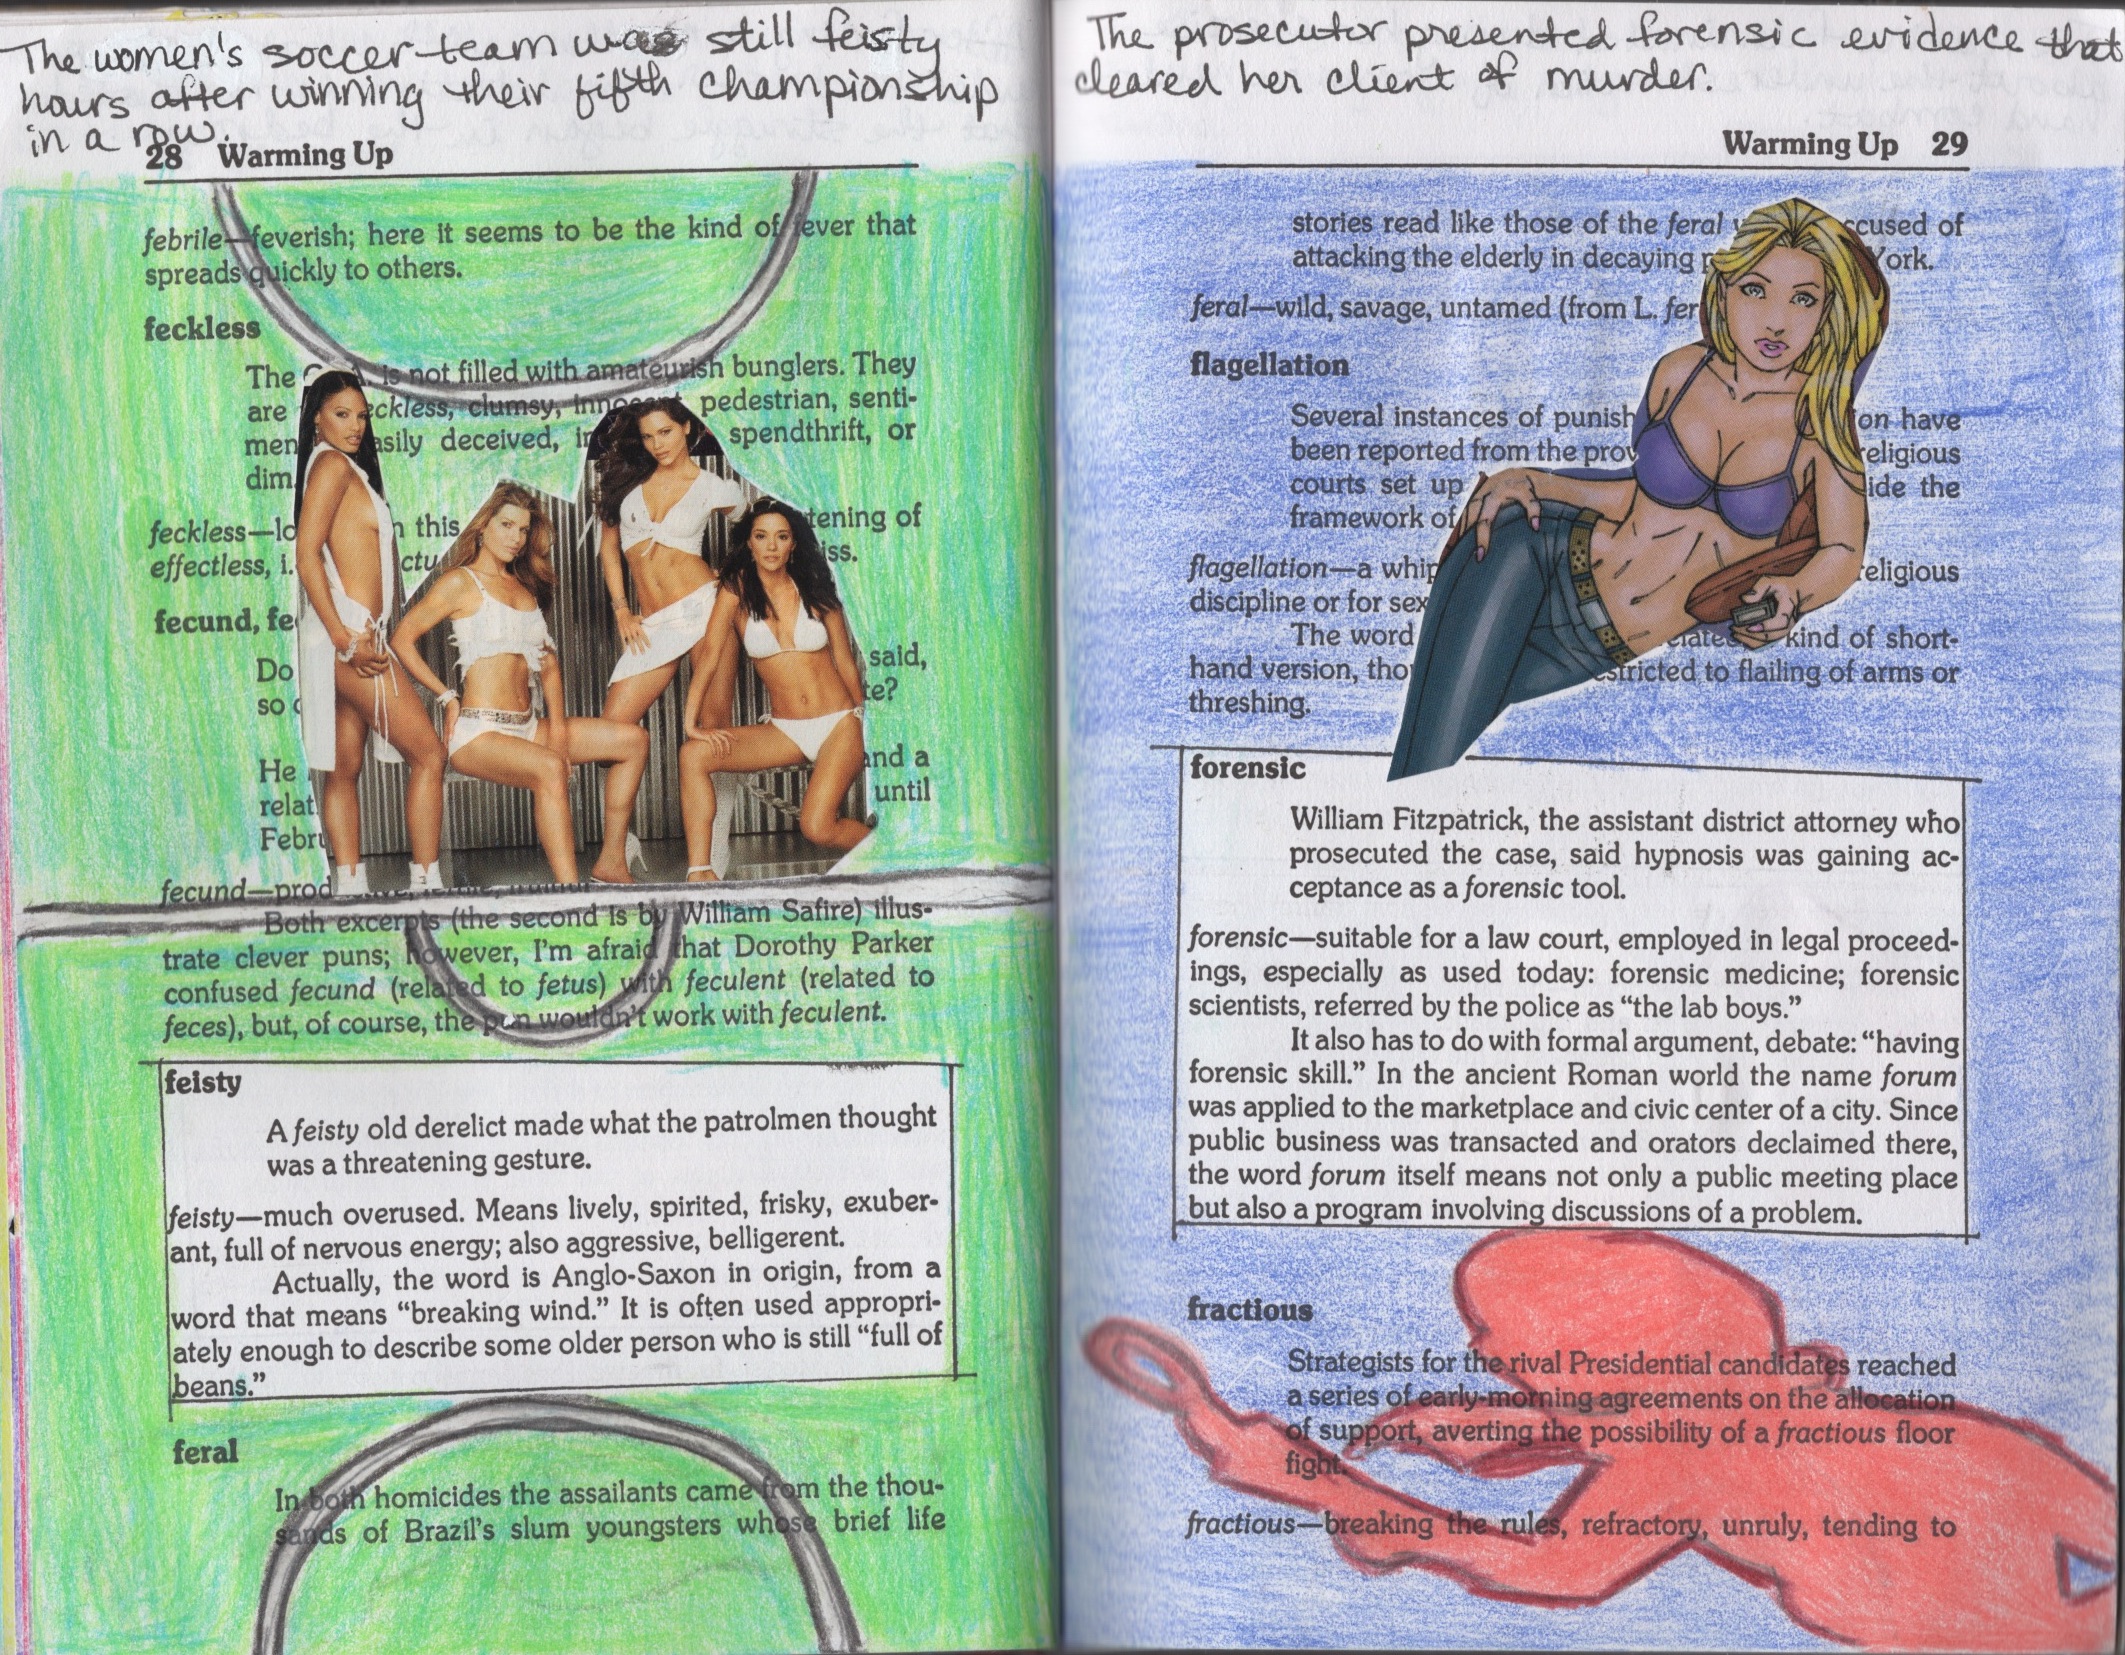 The women's soccer team was still feisty
hours after winning their fifth championship
in a row.
28 Warming Up
febrile—feverish; here it seems to be the kind of fever that
spreads quickly to others.
feckless
The is not filled with amateurish bunglers. They
are clumsy, pedestrian, senti-
men deceived, spendthrift, or
dim
feckless—lo this tening of
effectless, i. ctu iss.
fecund, fe
Do said,
so te?
He and a
relat until
Febru
fecund—prod
Both excerpts (the second is by William Safire) illus-
trate clever puns; however, I'm afraid that Dorothy Parker
confused fecund (related to fetus) with feculent (related to
feces), but, of course, the pun wouldn't work with feculent.
feisty
A feisty old derelict made what the patrolmen thought
was a threatening gesture.
feisty—much overused. Means lively, spirited, frisky, exuber-
ant, full of nervous energy; also aggressive, belligerent.
Actually, the word is Anglo-Saxon in origin, from a
word that means “breaking wind.” It is often used appropri-
ately enough to describe some older person who is still “full of
beans.”
feral
In both homicides the assailants came from the thou-
sands of Brazil's slum youngsters whose brief life
The prosecutor presented forensic evidence that
cleared her client of murder.
Warming Up 29
stories read like those of the feral cused of
attacking the elderly in decaying York.
feral—wild, savage, untamed (from L. fer
flagellation
Several instances of punish on have
been reported from the prov religious
courts set up ide the
framework of
flagellation—a whip religious
discipline or for sex
The word kind of short-
hand version, tho stricted to flailing of arms or
threshing.
forensic
William Fitzpatrick, the assistant district attorney who
prosecuted the case, said hypnosis was gaining ac-
ceptance as a forensic tool.
forensic—suitable for a law court, employed in legal proceed-
ings, especially as used today: forensic medicine; forensic
scientists, referred by the police as “the lab boys.”
It also has to do with formal argument, debate: “having
forensic skill.” In the ancient Roman world the name forum
was applied to the marketplace and civic center of a city. Since
public business was transacted and orators declaimed there,
the word forum itself means not only a public meeting place
but also a program involving discussions of a problem.
fractious
Strategists for the rival Presidential candidates reached
a series of early-morning agreements on the allocation
of support, averting the possibility of a fractious floor
fight.
fractious—breaking the rules, refractory, unruly, tending to